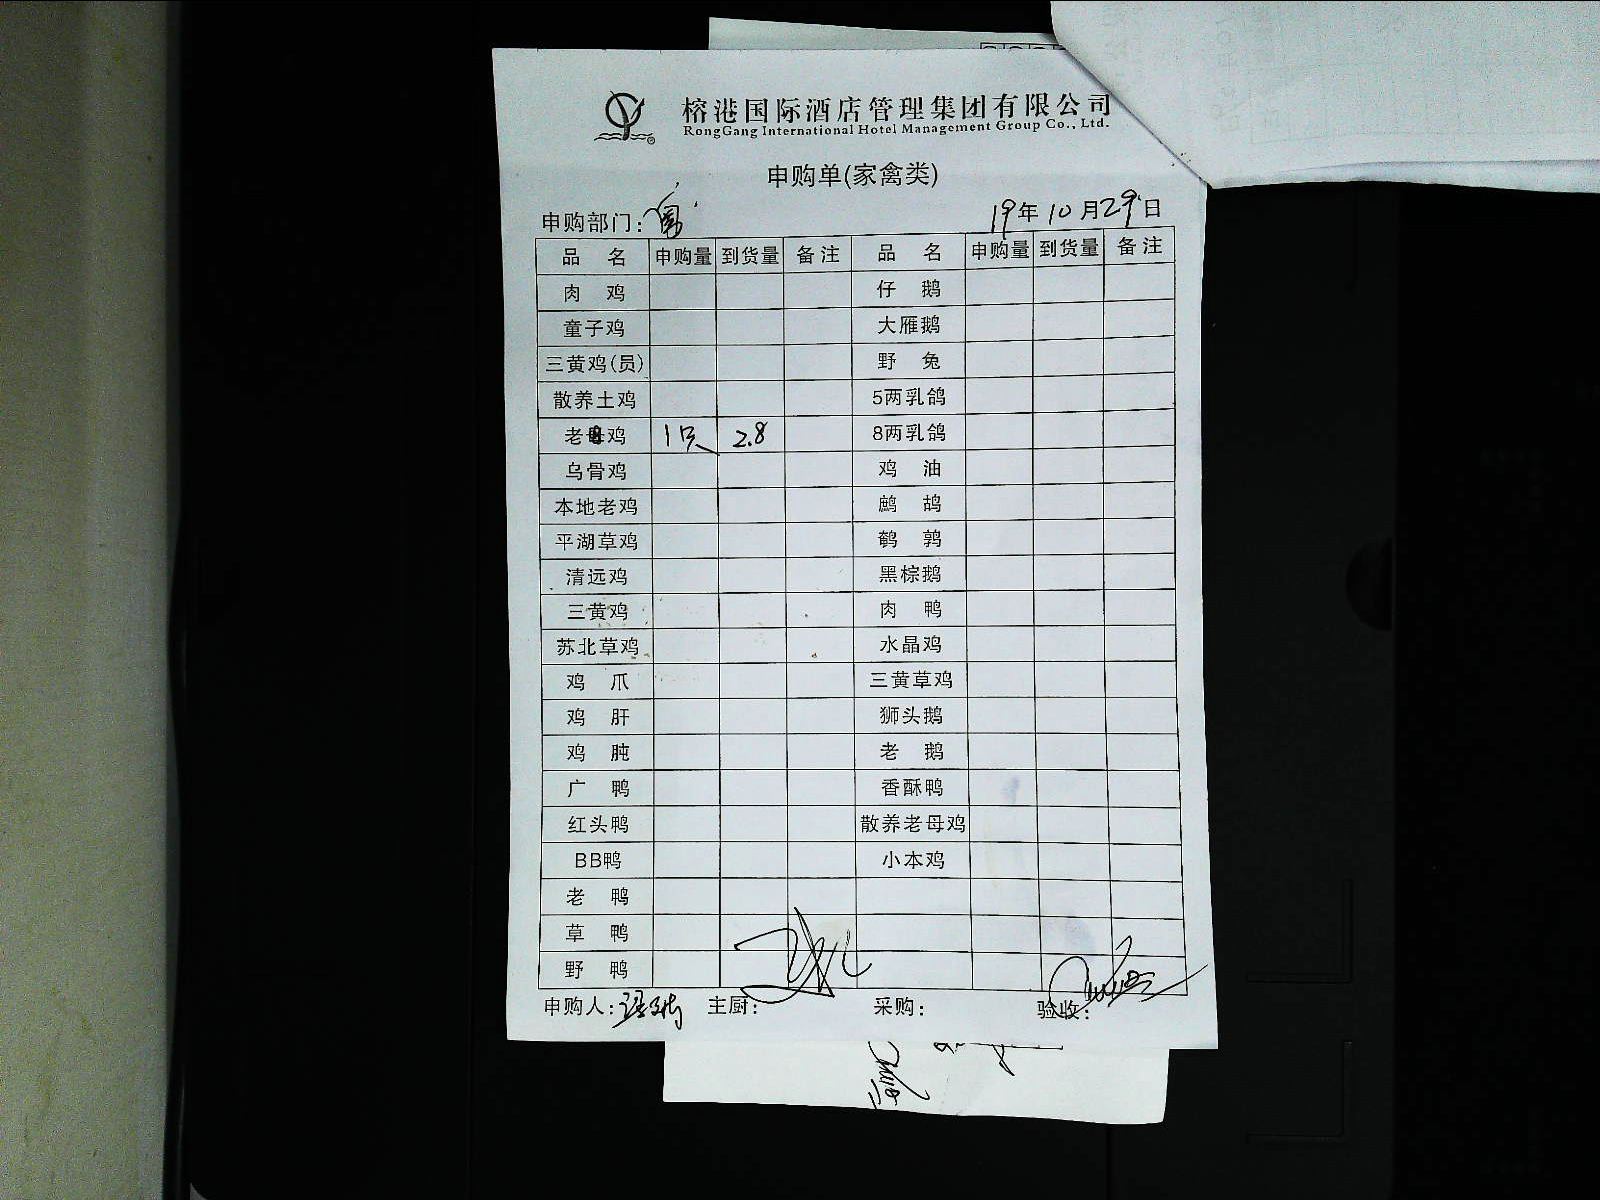 榕港国际酒店管理集团有限公司
RongGang International Hotel Management Group Co., Ltd.
申购单(家禽类)
申购部门: 19年10月29日
品 名 申购量 到货量 备注 品 名 申购量 到货量 备注
肉 鸡 仔 鹅
童子鸡 大雁鹅
三黄鸡(员) 野 兔
散养土鸡 5两乳鸽
老母鸡 1只 2.8 8两乳鸽
乌骨鸡 鸡 油
本地老鸡 鹧 鸪
平湖草鸡 鹌 鹑
清远鸡 黑棕鹅
三黄鸡 肉 鸭
苏北草鸡 水晶鸡
鸡 爪 三黄草鸡
鸡 肝 狮头鹅
鸡 肫 老 鹅
广 鸭 香酥鸭
红头鸭 散养老母鸡
BB鸭 小本鸡
老 鸭
草 鸭
野 鸭
申购人: 主厨: 采购: 验收: